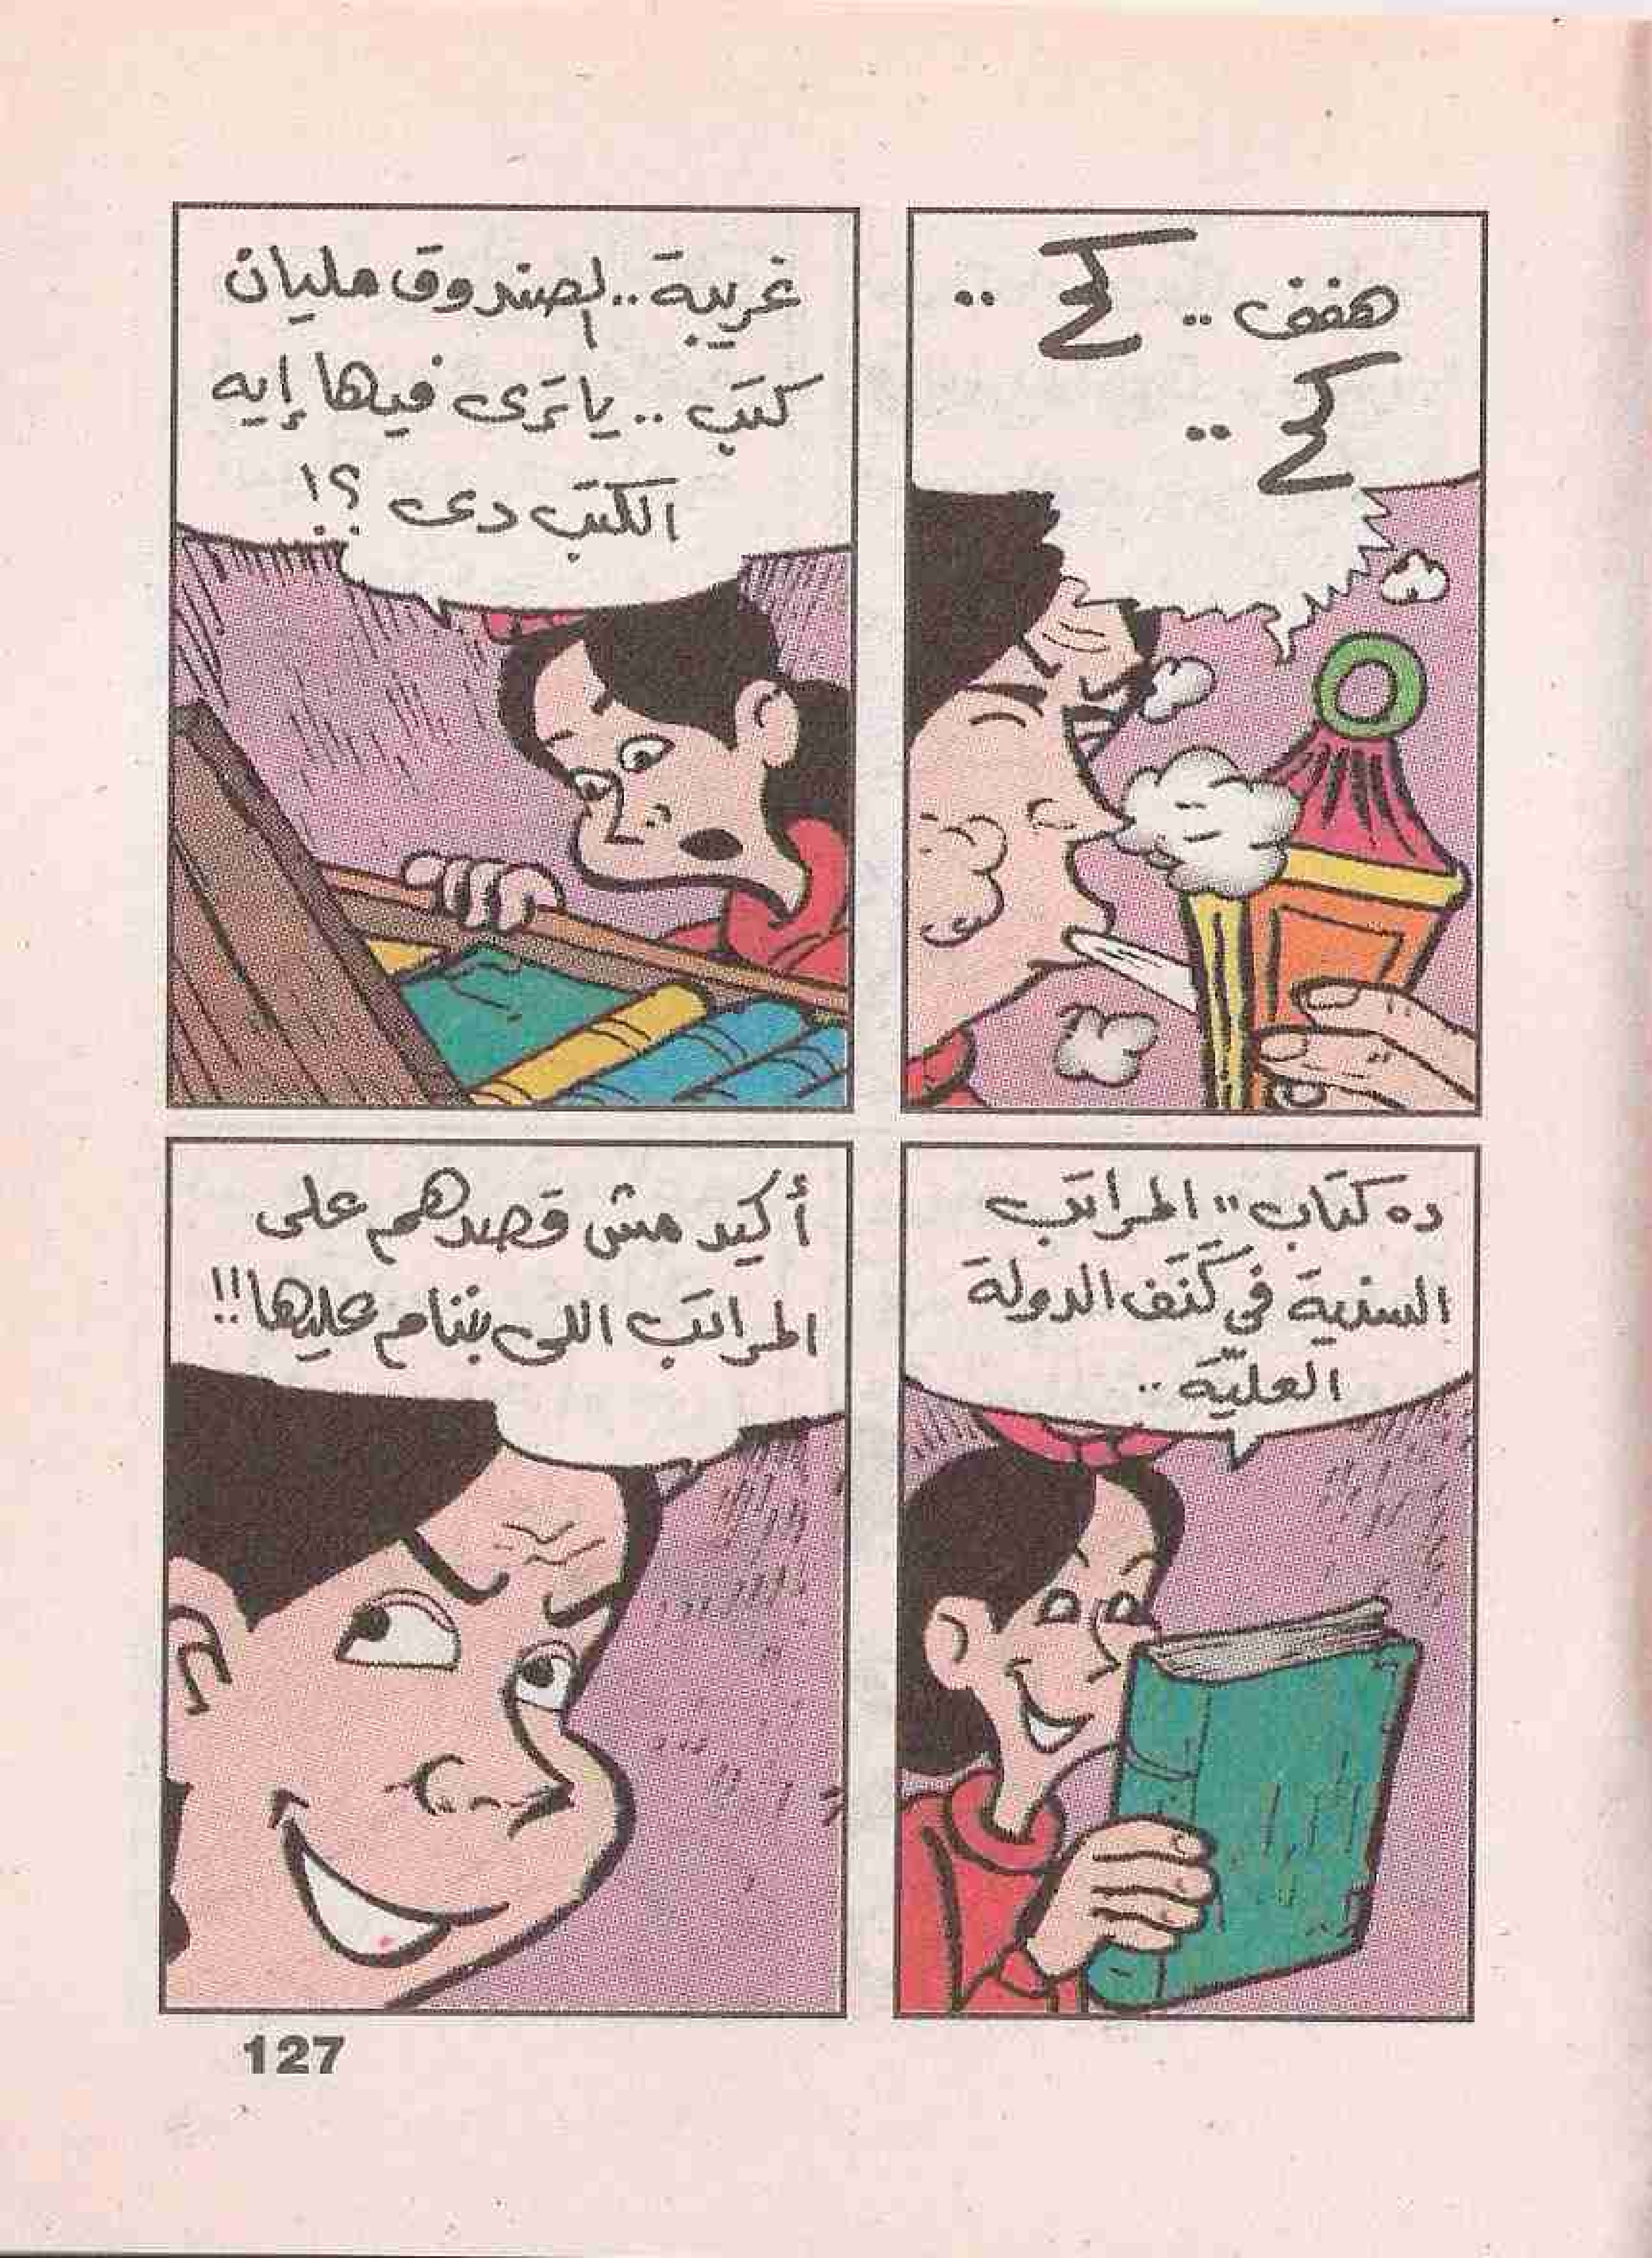 هففف .. كح ..
كح ..
غريبة .. الصندوق مليان
كتب .. يا تَرى فيها إيه
الكتب دى ؟!
ده كتاب "المراتب
السنية فى كَنَف الدولة
العليّة ..
أكيد مش قصدهم على
المراتب اللى بننام عليها !!
127